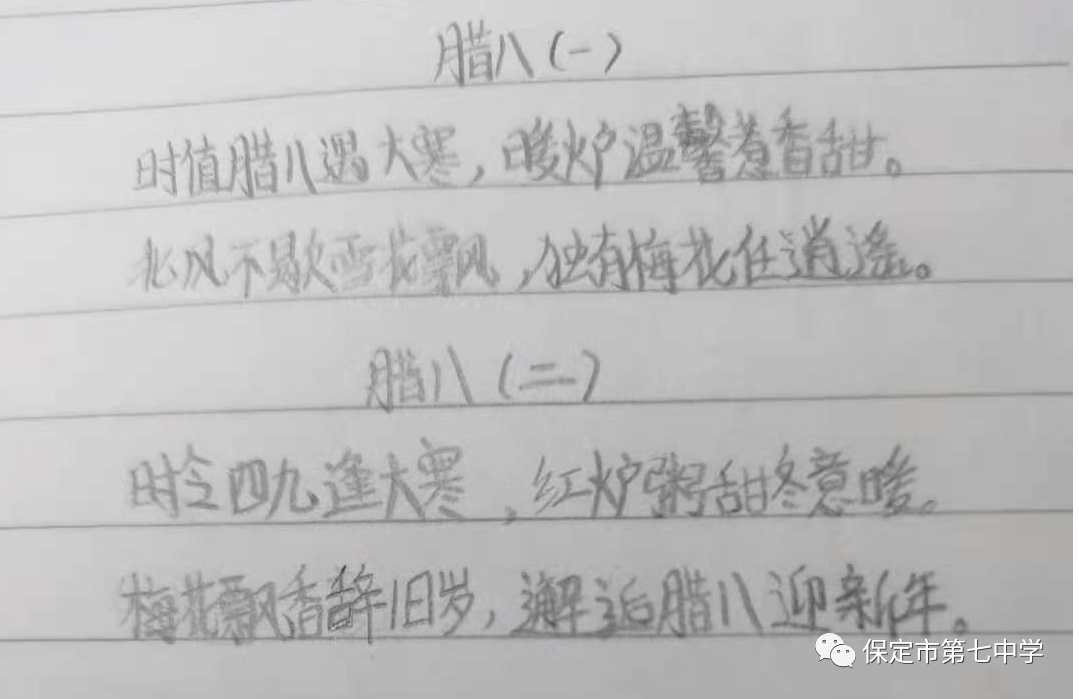 腊八(一)
时值腊八遇大寒,暖炉温馨惹香甜。
北风不歇雪花飘,独有梅花任逍遥。
腊八(二)
时令四九逢大寒,红炉粥甜冬意暖。
梅花飘香辞旧岁,邂逅腊八迎新年。
保定市第七中学